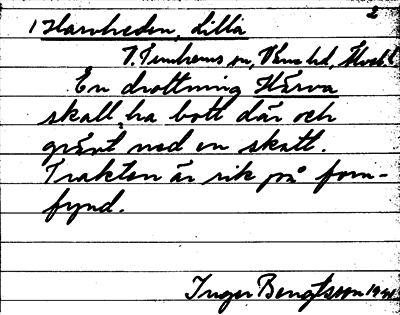 2
1 Harvheden, lilla
V. Temhems sn, Vemehd, Hvetl
En drottning Härva
skall ha bott där och
grävt ned en skatt.
Trakten är rik på forn-
fynd.
Inger Bengtsson 1941